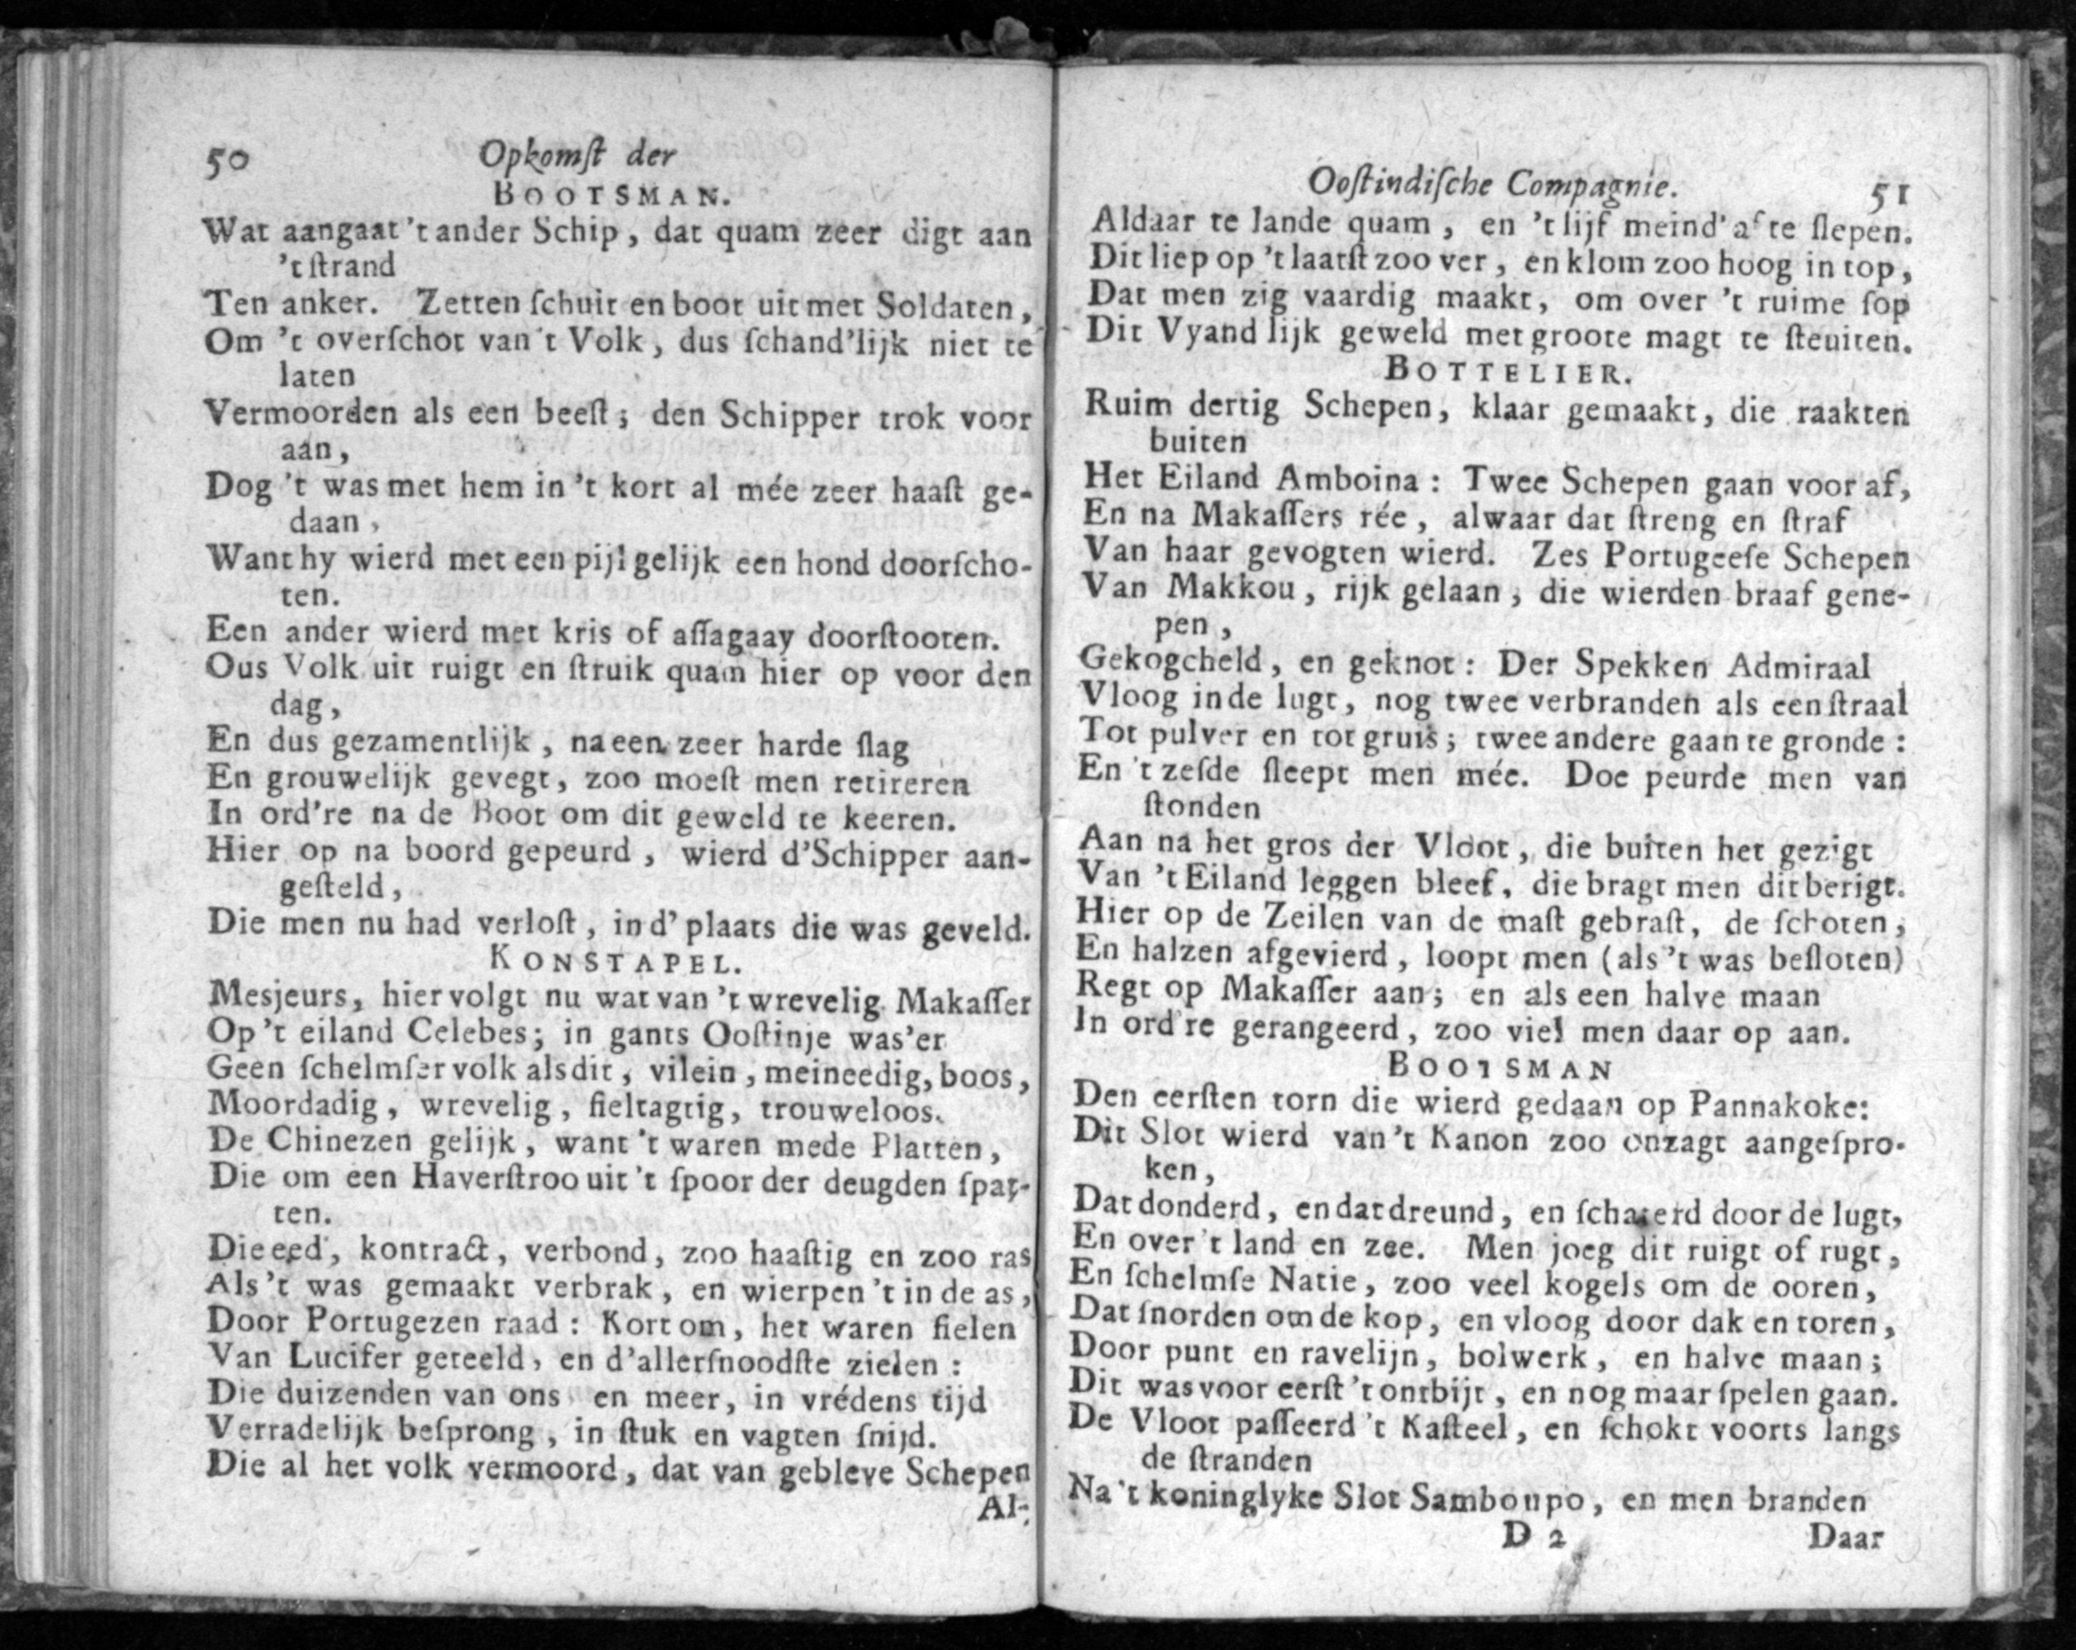 50 Opkomſt der
BOOTSMAN.
Wat aangaat 't ander Schip, dat quam zeer digt aan
't ſtrand
Ten anker. Zetten ſchuit en boot uit met Soldaten,
Om 't overſchot van 't Volk, dus ſchand'lijk niet te
laten
Vermoorden als een beeſt; den Schipper trok voor
aan,
Dog 't was met hem in 't kort al mée zeer haaſt ge-
daan,
Want hy wierd met een pijl gelijk een hond doorſcho-
ten.
Een ander wierd met kris of aſſagaay doorſtooten.
Ous Volk uit ruigt en ſtruik quam hier op voor den
dag,
En dus gezamentlijk, na een zeer harde ſlag
En grouwelijk gevegt, zoo moeſt men retireren
In ord're na de Boot om dit geweld te keeren.
Hier op na boord gepeurd, wierd d'Schipper aan-
geſteld,
Die men nu had verloſt, in d' plaats die was geveld.
KONSTAPEL.
Mesjeurs, hier volgt nu wat van 't wrevelig Makaſſer
Op 't eiland Celebes; in gants Ooſtinje was'er
Geen ſchelmſer volk als dit, vilein, meineedig, boos,
Moordadig, wrevelig, fieltagtig, trouweloos.
De Chinezen gelijk, want 't waren mede Platten,
Die om een Haverſtroo uit 't ſpoor der deugden ſpat-
ten.
Die eed, kontract, verbond, zoo haaſtig en zoo ras
Als 't was gemaakt verbrak, en wierpen 't in de as,
Door Portugezen raad: Kortom, het waren fielen
Van Lucifer geteeld, en d'allerſnoodſte zielen:
Die duizenden van ons en meer, in vrédens tijd
Verradelijk beſprong, in ſtuk en vagten ſnijd.
Die al het volk vermoord, dat van gebleve Schepen
Al-
Ooſtindiſche Compagnie. 51
Aldaar te lande quam, en 't lijf meind' af te ſlepen.
Dit liep op 't laatſt zoo ver, en klom zoo hoog in top,
Dat men zig vaardig maakt, om over 't ruime ſop
Dit Vyandlijk geweld met groote magt te ſteuiten.
BOTTELIER.
Ruim dertig Schepen, klaar gemaakt, die raakten
buiten
Het Eiland Amboina: Twee Schepen gaan voor af,
En na Makaſſers rée, alwaar dat ſtreng en ſtraf
Van haar gevogten wierd. Zes Portugeeſe Schepen
Van Makkou, rijk gelaan, die wierden braaf gene-
pen,
Gekogcheld, en geknot: Der Spekken Admiraal
Vloog in de lugt, nog twee verbranden als een ſtraal
Tot pulver en tot gruis; twee andere gaan te gronde:
En 't zeſde ſleept men mée. Doe peurde men van
ſtonden
Aan na het gros der Vloot, die buiten het gezigt
Van 't Eiland leggen bleef, die bragt men dit berigt.
Hier op de Zeilen van de maſt gebraſt, de ſchoten,
En halzen afgevierd, loopt men (als 't was beſloten)
Regt op Makaſſer aan; en als een halve maan
In ord're gerangeerd, zoo viel men daar op aan.
BOOTSMAN
Den eerſten torn die wierd gedaan op Pannakoke:
Dit Slot wierd van 't Kanon zoo onzagt aangeſpro-
ken,
Dat donderd, en dat dreund, en ſchaterd door de lugt,
En over 't land en zee. Men joeg dit ruigt of rugt,
En ſchelmſe Natie, zoo veel kogels om de ooren,
Dat ſnorden om de kop, en vloog door dak en toren,
Door punt en ravelijn, bolwerk, en halve maan;
Dit was voor eerſt 't ontbijt, en nog maar ſpelen gaan.
De Vloot paſſeerd 't Kaſteel, en ſchokt voorts langs
de ſtranden
Na 't koninglyke Slot Samboupo, en men branden
D 2 Daar